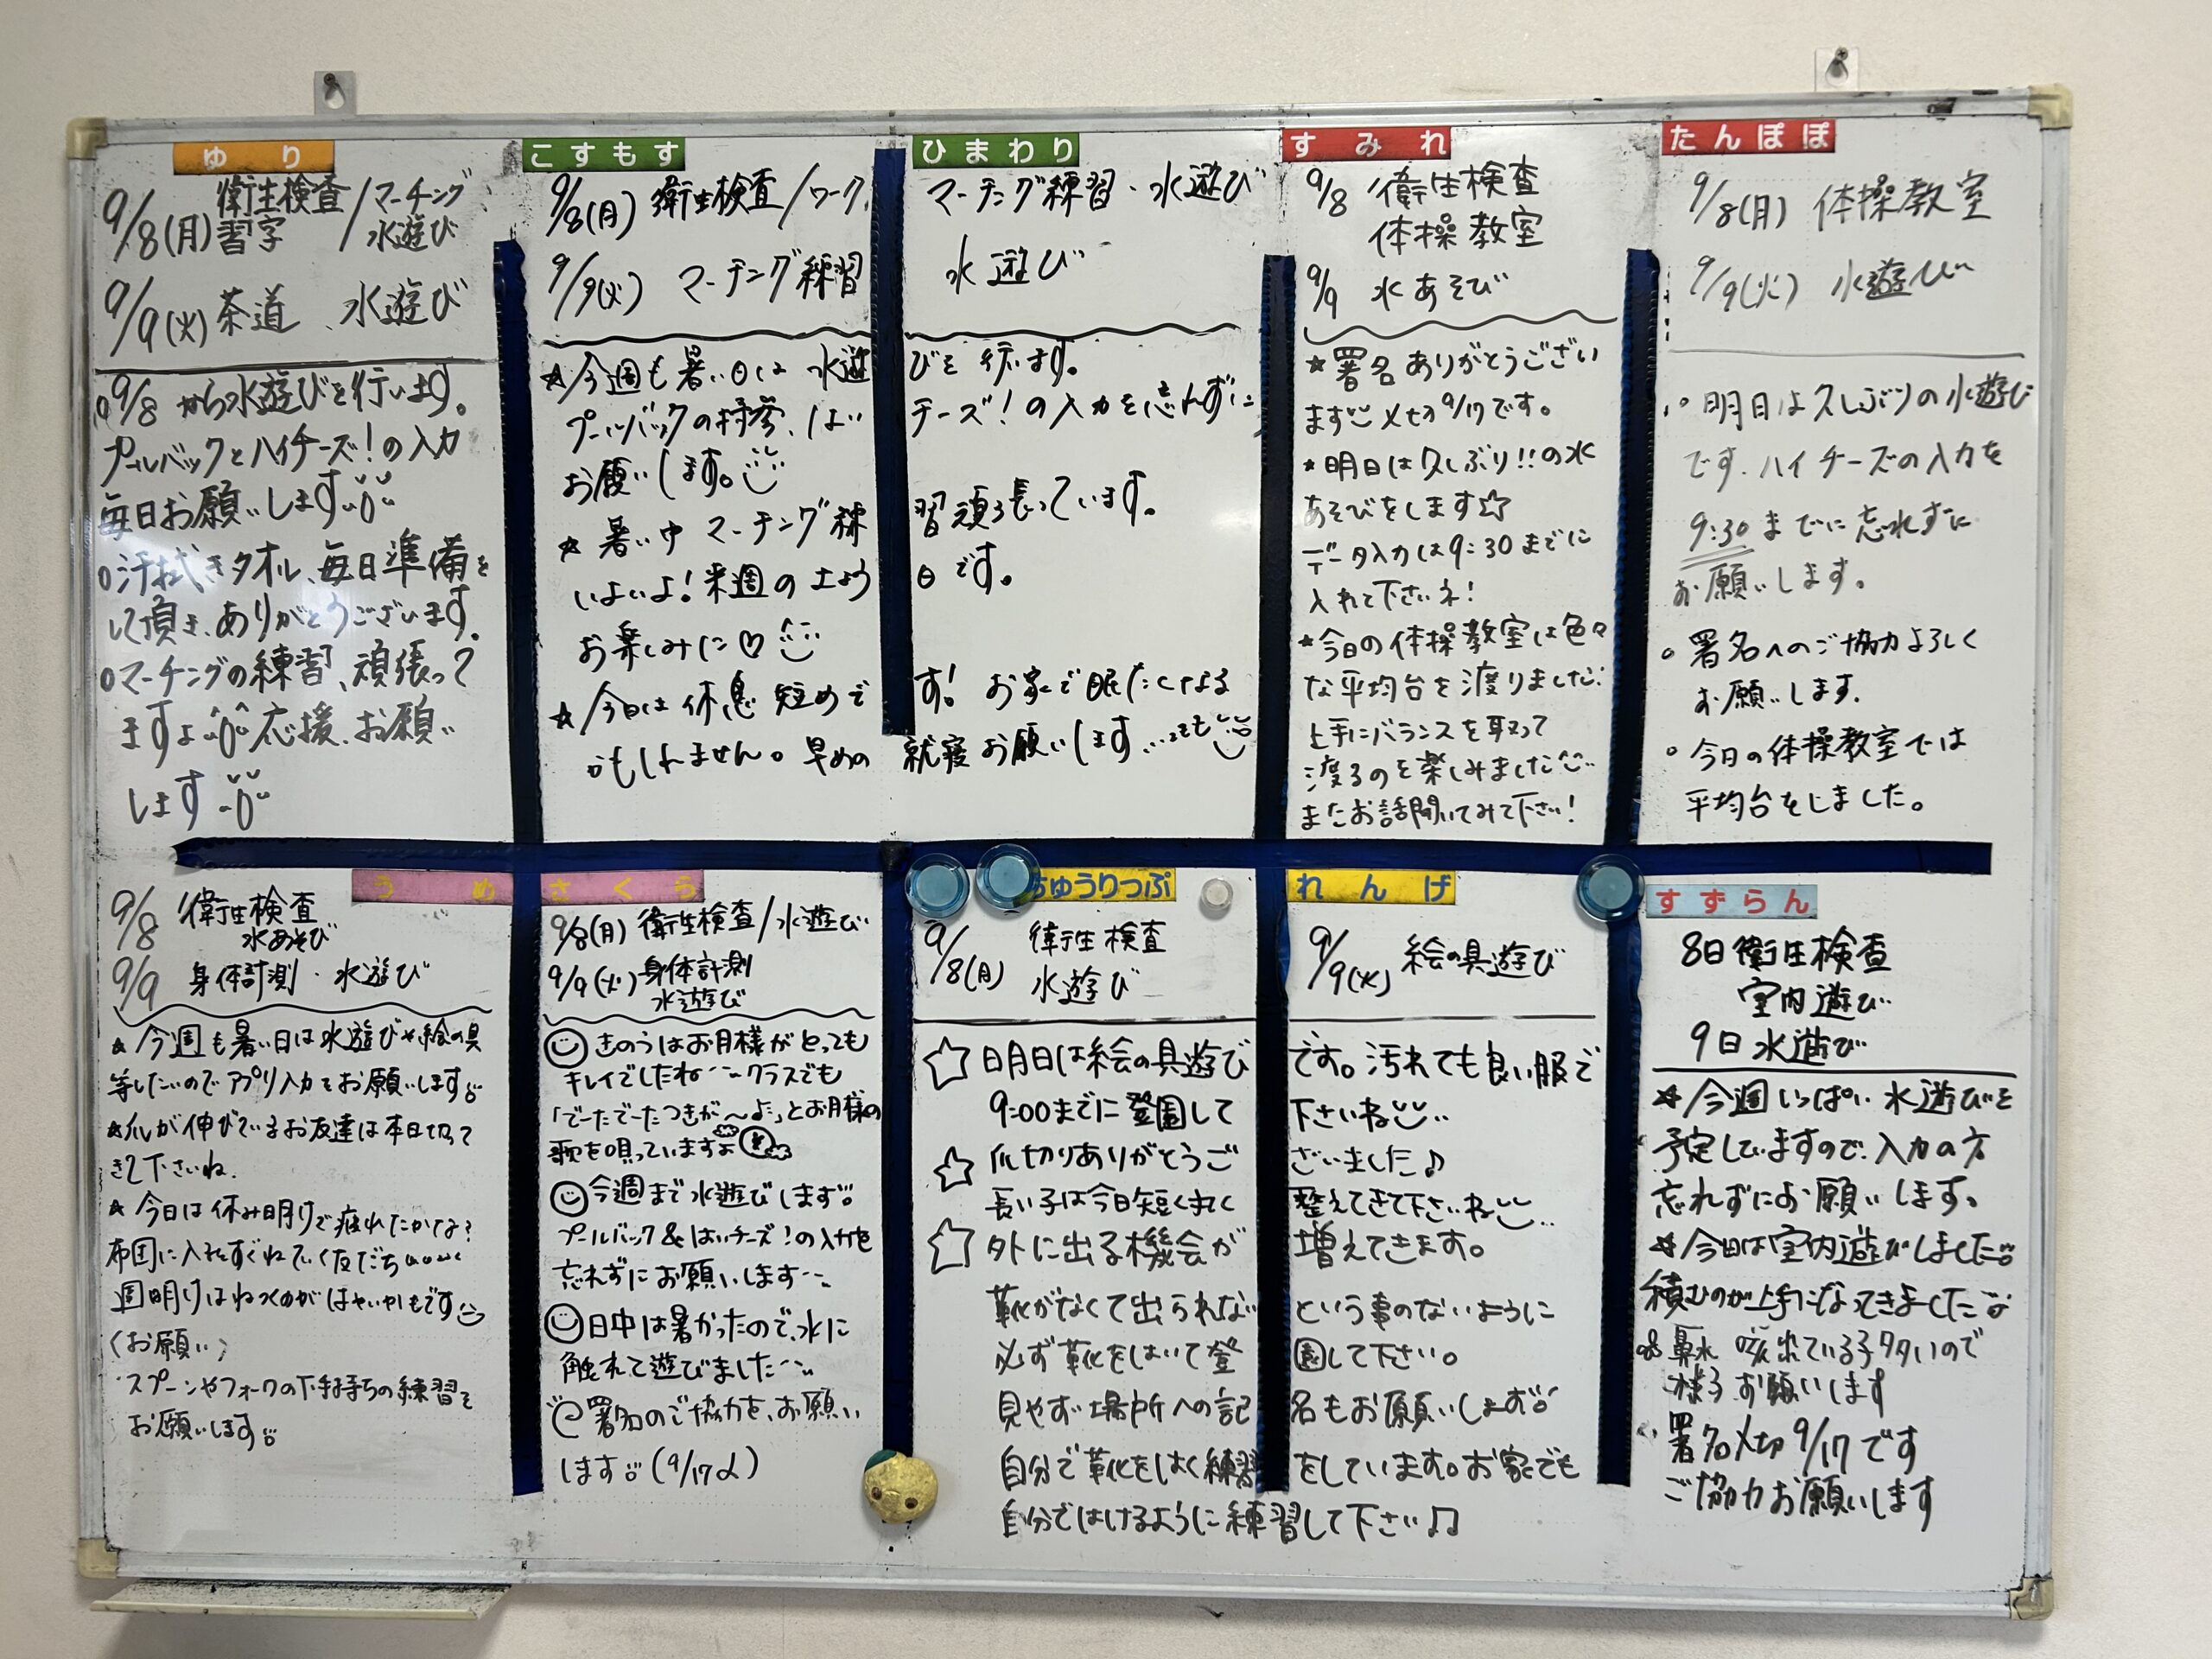 ゆり
9/8(月) 衛生検査 習字 / マーチング 水遊び
9/9(火) 茶道、水遊び
○9/8から水遊びを行います。
プールバックとハイチーズ！の入力
毎日お願いします
○汗拭きタオル、毎日準備を
して頂き、ありがとうございます。
○マーチングの練習、頑張って
ますよ 応援、お願い
します
こすもす
ひまわり
9/8(月) 衛生検査/ワーク、マーチング練習・水遊び
9/9(火) マーチング練習 水遊び
☆今週も暑い日は水遊びを行います。
プールバックの持参、はいチーズ！の入力を忘れずに
お願いします。
☆暑い中マーチング練習頑張っています。
いよいよ！来週の土よう日です。
お楽しみに♡
☆今日は休息短めです！お家で眠たくなる
かもしれません。早めの就寝お願いします
すみれ
9/8 衛生検査
体操教室
9/9 水あそび
★署名ありがとうござい
ます 〆切9/17です。
★明日は久しぶり!!の水
あそびをします☆
データ入力は9:30までに
入れて下さいネ！
★今日の体操教室は色々
な平均台を渡りました
上手にバランスを取って
渡るのを楽しみました
またお話聞いてみて下さい！
たんぽぽ
9/8(月) 体操教室
9/9(火) 水遊び
○明日は久しぶりの水遊び
です。ハイチーズの入力を
9:30までに忘れずに
お願いします。
○署名へのご協力よろしく
お願いします。
○今日の体操教室では
平均台をしました。
うめ
9/8 衛生検査
水あそび
9/9 身体計測・水遊び
★今週も暑い日は水遊びや絵の具
等したいのでアプリ入力をお願いします
★爪が伸びているお友達は本日切って
きて下さいね.
★今日は休み明けで疲れたかな？
布団に入るとすぐねていく友だち
週明けはねつくのがはやいかもです
〈お願い〉
スプーンやフォークの下手持ちの練習を
お願いします
さくら
9/8(月) 衛生検査/水遊び
9/9(火) 身体計測
水遊び
きのうはお月様がとっても
キレイでしたね クラスでも
「でーたでーたつきが〜♪」とお月様の
歌を唄っていますよ
今週まで水遊びします
プールバック&はいチーズ！の入力を
忘れずにお願いします
日中は暑かったので、水に
触れて遊びました
署名のご協力を、お願い
します(9/17〆)
ちゅうりっぷ
れんげ
9/8(月) 衛生検査 水遊び
9/9(火) 絵の具遊び
☆明日は絵の具遊びです。汚れても良い服で
9:00までに登園して下さいね
☆爪切りありがとうございました♪
長い子は今日短くまたく整えてきて下さいね
☆外に出る機会が増えてきます。
靴がなくて出られないという事のないように
必ず靴をはいて登園して下さい。
見やすい場所への記名もお願いします
自分で靴をはく練習をしています。お家でも
自分ではけるように練習して下さい♫
すずらん
8日 衛生検査
室内遊び
9日 水遊び
★今週いっぱい水遊びを
予定していますので、入力の方
忘れずにお願いします。
★今日は室内遊びしました
積むのが上手になってきました
鼻水 咳出ている子多いので
様子お願いします
署名〆切9/17です
ご協力お願いします